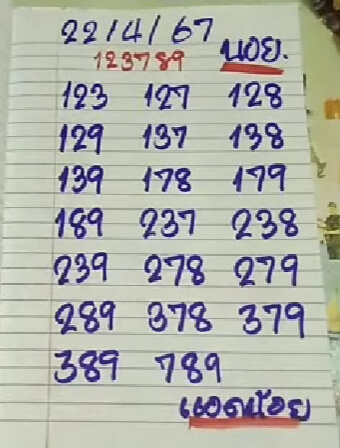 22/4/67
123789 นอย.
123 127 128
129 137 138
139 178 179
189 237 238
239 278 279
289 378 379
389 789